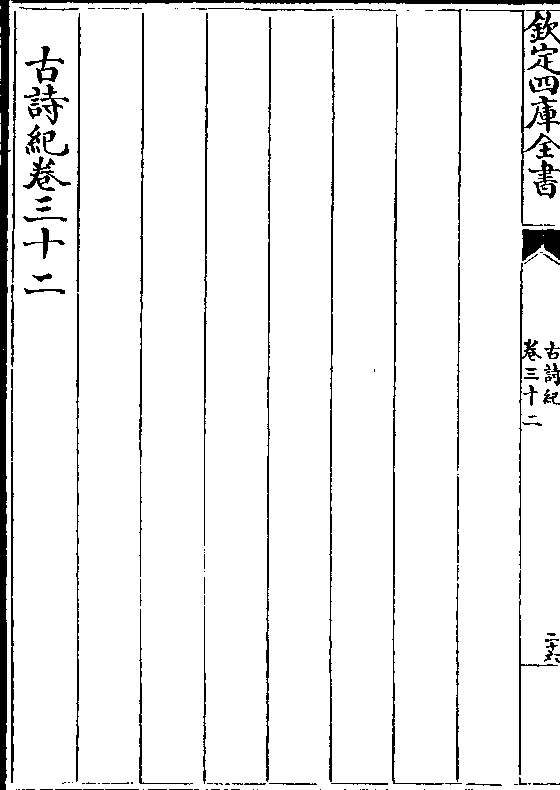 欽定四庫全書
古詩紀
卷三十二
二十六
古詩紀卷三十二